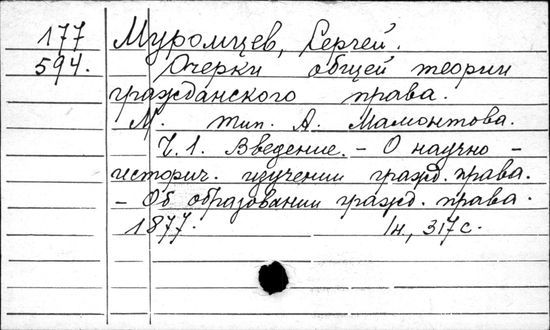 177 Муромцев, Сергей.
594. Очерки общей теории
гражданского права.
М. тип. А. Мамонтова.
Ч.1. Введение. - О научно -
историч. изучении гражд. права.
- Об образовании гражд. права.
1877. 1н., 317 с.